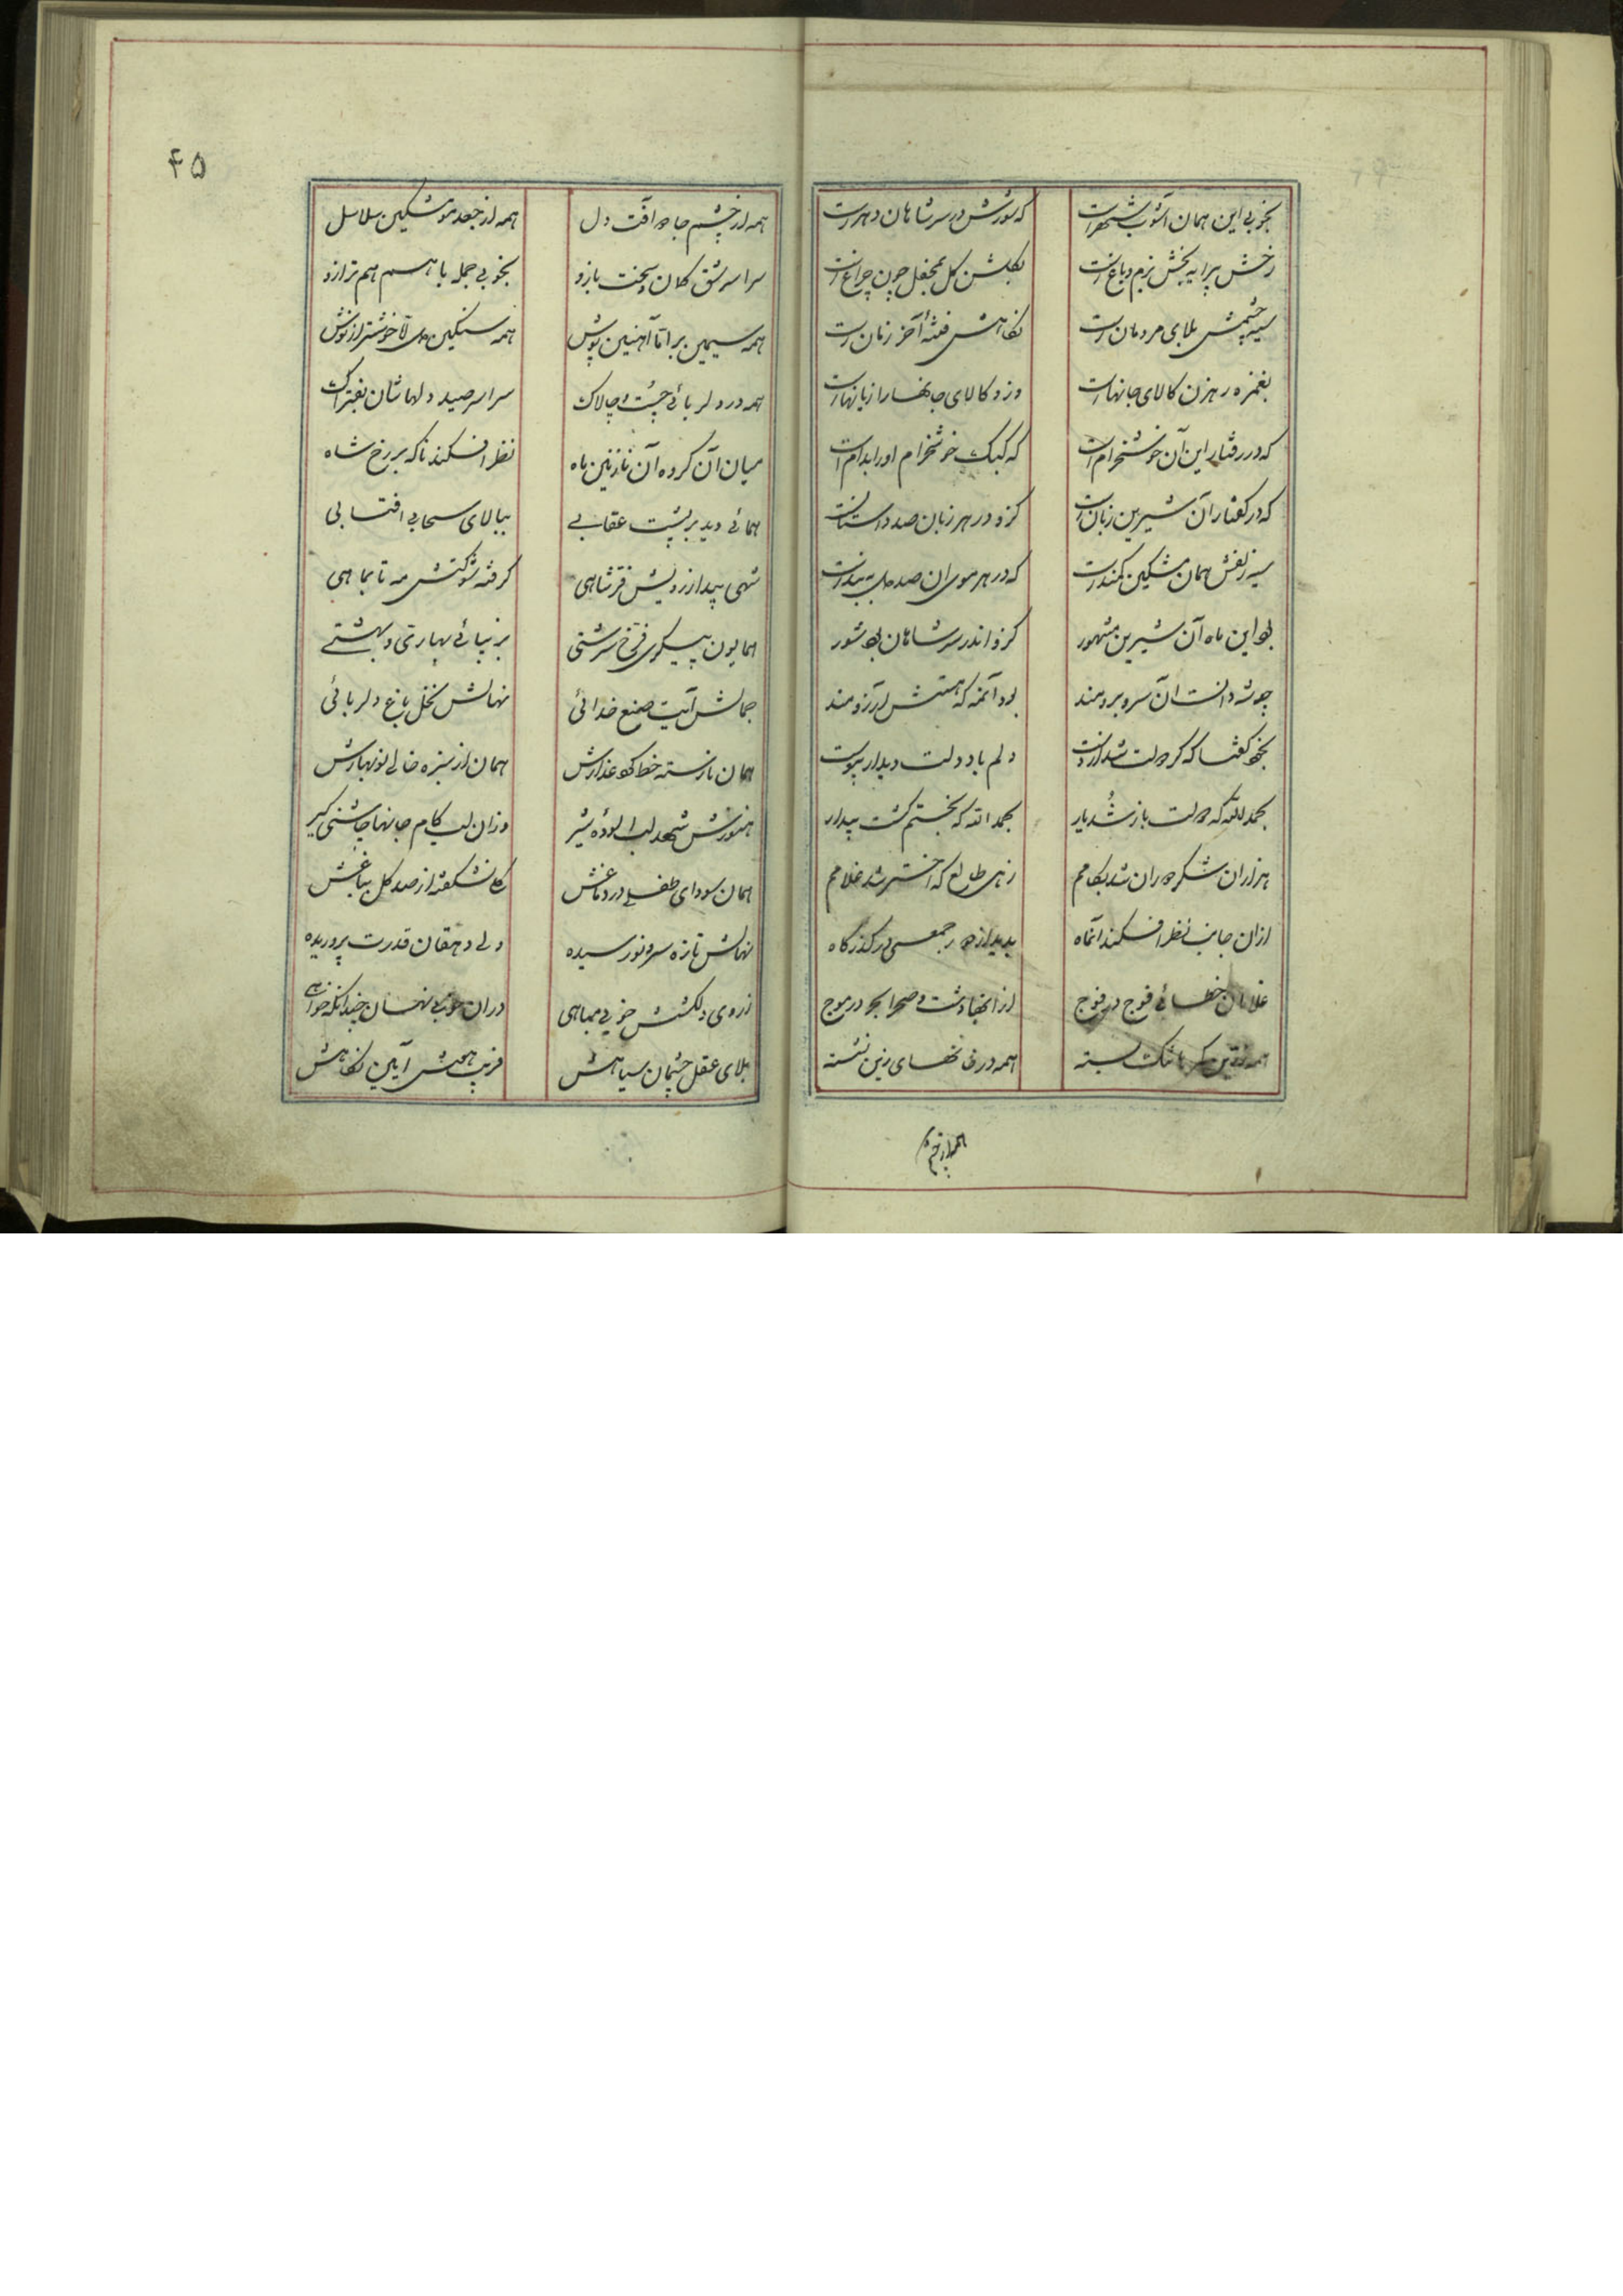 بخوبی این همان آشوب شهراست که شورش در سر شاهان دهراست
رخش پیرایه بخش بزم و باغ است بگلشن گل بمحفل چون چراغ است
سیه چشمش بلای مردمان است نگاهش فتنهٔ آخر زمان است
بغمزه رهزن کالای جانهاست وزو کالای جانها را زیانهاست
که در رفتار این آن خوشخرام است که کبک خوشخرام اورا بدام است
که در گفتار آن شیرین زبان است کزو در هر زبان صد داستانست
سیه زلفش همان مشکین کمندست که در هر موی ان صد دل به بندست
بود این ماه آن شیرین مشهور کزو اندر سر شاهان بود شور
چوشه دانست آن سرو برومند بود آنمه که هستش آرزومند
بخود گفتا که گر دولت شد از دست دلم با دولت دیدار پیوست
بحمدلله که دولت باز شد یار بحمد الله که بختم گشت بیدار
هزاران شکر دوران شد بکامم زهی طالع که اختر شد غلامم
ازان جانب نظر افکند آنماه بدید از دور جمعی در گذرگاه
غلامان خطائی فوج در فوج از انها دشت و صحرا بحر در موج
همه زرین کمرها تنگ بسته همه در خانهای زین نشسته
همه از چشم
۴۵
همه از چشم جادو آفت دل همه از جعد مو مشکین سلاسل
سراسر شق کمان و سخت بازو بخوبی جمله باهم هم ترازو
همه سیمین بر اما آهنین پوش همه سنگین دل خوشتر از نوش
همه در دلربائی چست و چالاک سراسر صید دلهاشان بفتراک
میان آن گروه آن نازنین ماه نظر افکند ناگه بر رخ شاه
همائی دید بر پشت عقابی ببالای سحابی افتابی
شهی پیدا ز رویش فر شاهی گرفته شوکتش مه تا بماهی
همایون پیکری فرخ سرشتی بزیبائی بهاری و بهشتی
جمالش آیت صنع خدائی نهالش نخل باغ دلربائی
همان نارسته خط گرد عذارش همان از سبزه خالی نوبهارش
هنوزش شهد لب الوده شیر وزان لب کام جانها چاشنی گیر
همان سودای طفلی در دماغش گل نشکفته از صد گل بباغش
نهالش تازه سرو نورسیده ولی دهقان قدرت پروریده
ز روی دلکشش خوبی مباهی دران خوبی نهان چندانکه خواهی
بلای عقل چشمان سیاهش فریب آیین نگاهش